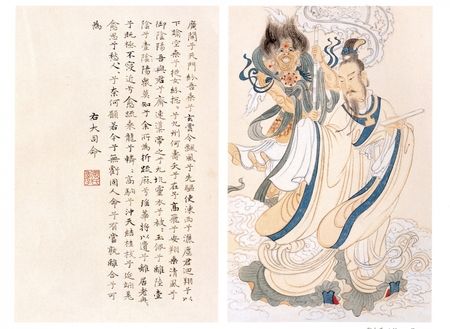 廣開兮天門紛吾乘兮玄雲令飄風兮先驅使涷雨兮灑塵君迴翔兮以
下踰空桑兮從女紛總〻兮九州何壽夭兮在予高飛兮安翔乘清氣兮
御陰陽吾與君兮齋速導帝之兮九坑靈衣兮被〻玉佩兮陸離壹
陰兮壹陽衆莫知兮余所為折疏麻兮瑤華將以遺兮離居老冉〻
兮既極不寖近兮愈疏乘龍兮轔〻高駝兮沖天結桂枝兮延竚羌
愈思兮愁人〻兮奈何願若今兮無虧固人命兮有當孰離合兮可
為
右大司命